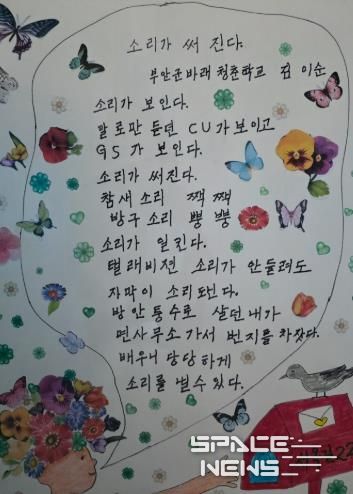 소리가 써 진다.
부안군바래 청춘학교 김 이순
소리가 보인다.
말로만 듣던 CU가 보이고
GS 가 보인다.
소리가 써진다.
참새 소리 짹 짹
방구 소리 뿡 뿡
소리가 일킨다.
텔래비젼 소리가 안들려도
자막이 소리도넌다.
방안통수로 살던 내가
면사무소 가서 번지를 차잣다.
배우니 당당하게
소리를 낼수 있다.
SPACE
NEWS